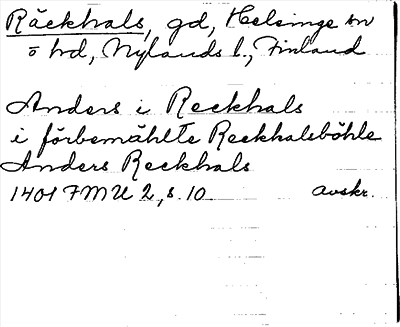 Räckhals, gd, Helsinge sn
o hd, Nylands l., Finland
Anders i Reckhals
i förbemählte Reckhalsböhle
Anders Reckhals
1401 FMU 2, s. 10 avskr.